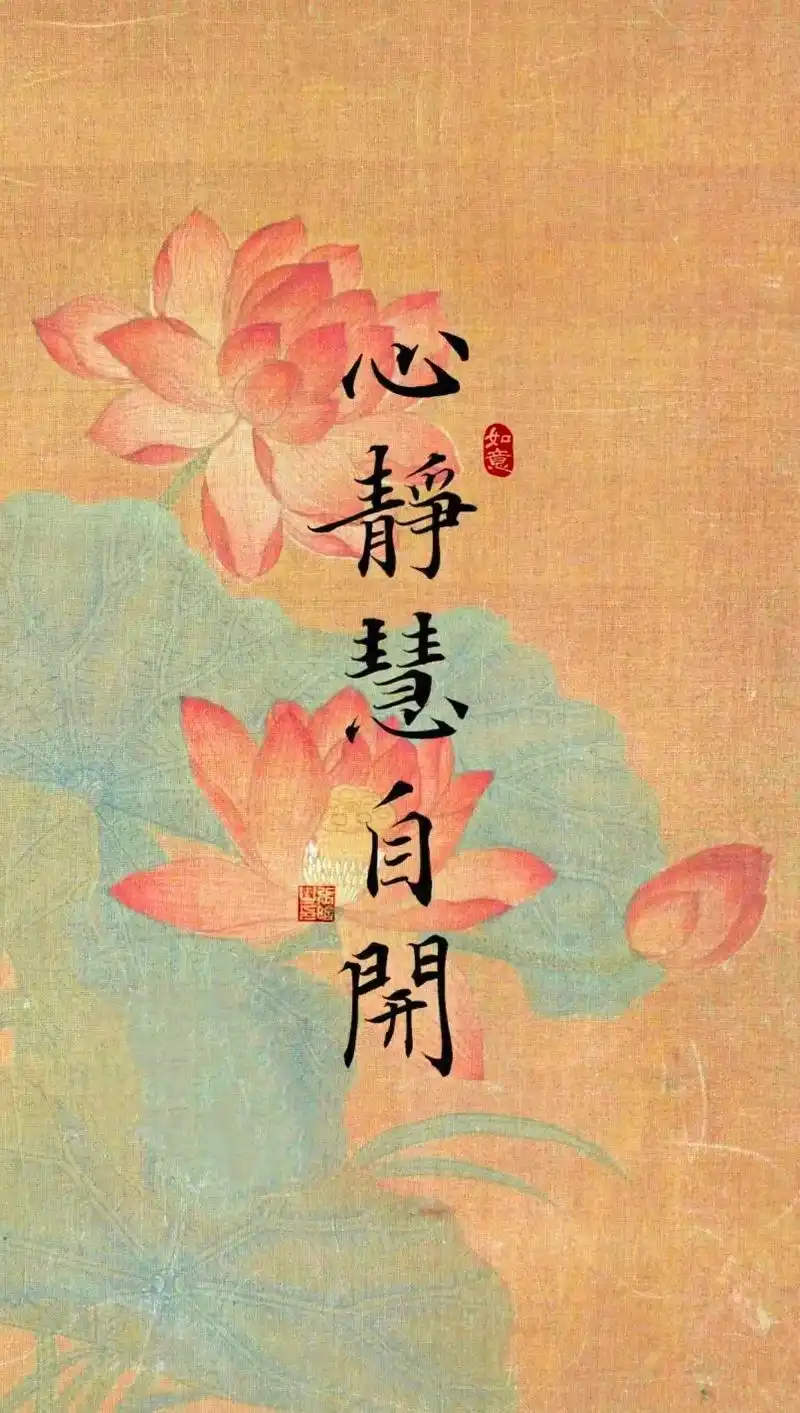 心靜慧自開
如意